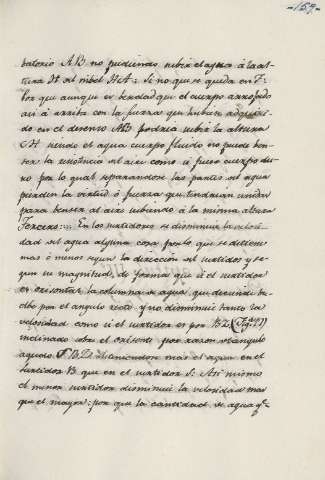 -159-
batorio A.B no pudiendo subir el agua á la al-
tura H. al nibel H.A: Si no que se queda en F.
Por que aunque es berdad que el cuerpo arrojado
asi á arriba con la fuerza que hubiese adquiri-
do en el decenso A.B podria subir la altura
H siendo el agua cuerpo fluido no puede ben-
ser la resistencia del aire como si fuese cuerpo du-
ro por lo qual separandose las partes del agua
pierden la virtud ó fuerza que tendrian unidas
para benser al aire subiendo á la misma altura
Tercero: En los surtidores se disminuie la veloci-
dad del agua alguna cosa por lo que se detiene
mas ó menos segun la direccion del surtidor y se-
gun su magnitud, de forma que si el surtidor
es orisontal la columna de agua que deciende
por el angulo recto y no disminuie tanto la
velocidad como si el surtidor es por B.D. (Fig.ª
inclinado sobre el orisonte por razon del angulo
agudo F.B.D. mas el agua en el
surtidor B que en el surtidor S: Asi mismo
el menor surtidor disminuie la velosidad mas
que el mayor: por que la cantidad de agua q.e